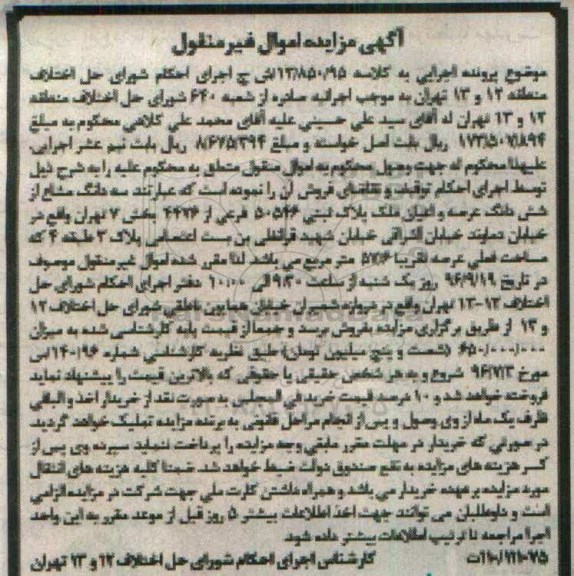 آگهی مزایده اموال غیر منقول
موضوع پرونده اجرایی به کلاسه ۱۳/۸۵۰/۹۵ش ح اجرای احکام شورای حل اختلاف
منطقه ۱۲ و ۱۳ تهران به موجب اجرائیه صادره از شعبه ۶۴۰ شورای حل اختلاف منطقه
۱۲ و ۱۳ تهران له آقای سید علی حسینی علیه آقای محمد علی کلاهی محکوم به مبلغ
۱۷۳/۵۰۷/۸۹۴ ریال بابت اصل خواسته و مبلغ ۸/۶۷۵/۳۹۴ ریال بابت نیم عشر اجرایی،
علیهذا محکوم له جهت وصول محکوم به اموال منقول متعلق به محکوم علیه را به شرح ذیل
توسط اجرای احکام توقیف و تقاضای فروش آن را نموده است که عبارتند سه دانگ مشاع از
شش دانگ عرصه و اعیان ملک پلاک ثبتی ۵۰۵۴۶ فرعی از ۴۴۷۴ بخش ۷ تهران واقع در
خیابان دماوند خیابان اشراقی خیابان شهید قراقلی بن بست اعتصامی پلاک ۳ طبقه ۴ که
مساحت فعلی عرصه تقریبا ۵۷/۶ متر مربع می باشد. لذا مقرر شده اموال غیر منقول موصوف
در تاریخ ۹۶/۹/۱۹ روز یک شنبه از ساعت ۹:۳۰ الی ۱۰:۰۰ دفتر اجرای احکام شورای حل
اختلاف ۱۲-۱۳ تهران واقع در دروازه شمیران خیابان همایون ناطقی شورای حل اختلاف ۱۲
و ۱۳ از طریق برگزاری مزایده بفروش برسد و جمعا از قیمت پایه کارشناسی شده به میزان
۶۵۰/۰۰۰/۰۰۰ (شصت و پنج میلیون تومان) طبق نظریه کارشناسی شماره ۱۴۰/۹۶
مورخ ۹۶/۷/۳ شروع و به هر شخص حقیقی یا حقوقی که بالاترین قیمت را پیشنهاد نماید
فروخته خواهد شد و ۱۰ درصد قیمت خرید فی المجلس به صورت نقد از خریدار اخذ و الباقی
ظرف یک ماه از وی وصول و پس از انجام مراحل قانونی به برنده مزایده تملیک خواهد گردید.
در صورتی که خریدار در مهلت مقرر مابقی وجه مزایده را پرداخت ننماید سپرده وی پس از
کسر هزینه های مزایده به نفع صندوق دولت ضبط خواهد شد. ضمنا کلیه هزینه های انتقال
مورد مزایده بر عهده خریدار می باشد و همراه داشتن کارت ملی جهت شرکت در مزایده الزامی
است و داوطلبان می توانند جهت اخذ اطلاعات بیشتر ۵ روز قبل از موعد مقرر به این واحد
اجرا مراجعه تا ترتیب اطلاعات بیشتر داده شود.
کارشناس اجرای احکام شورای حل اختلاف ۱۲ و ۱۳ تهران